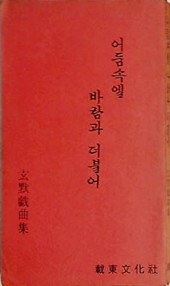 어둠속엘
바람과 더불어
玄默戱曲集
載東文化社